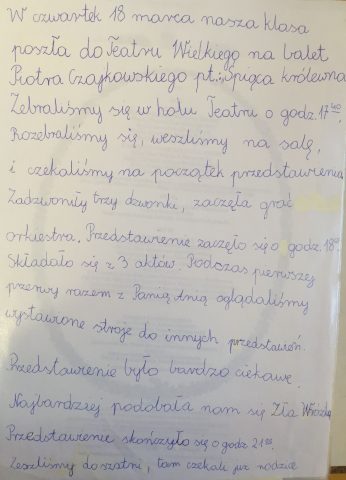 W czwartek 18 marca nasza klasa
poszła do Teatru Wielkiego na balet
Piotra Czajkowskiego pt.: Śpiąca królewna
Zebraliśmy się w holu Teatru o godz. 17⁴⁰.
Rozebraliśmy się, weszliśmy na salę,
i czekaliśmy na początek przedstawienia
Zadzwoniły trzy dzwonki, zaczęła grać
orkiestra. Przedstawienie zaczęło się o godz. 18⁰⁰.
Składało się z 3 aktów. Podczas pierwszej
przerwy razem z Panią Anią oglądaliśmy
wystawione stroje do innych przedstawień.
Przedstawienie było bardzo ciekawe.
Najbardziej podobała nam się Zła Wróżka
Przedstawienie skończyło się o godz 21⁰⁰.
Zeszliśmy do szatni, tam czekali już rodzice